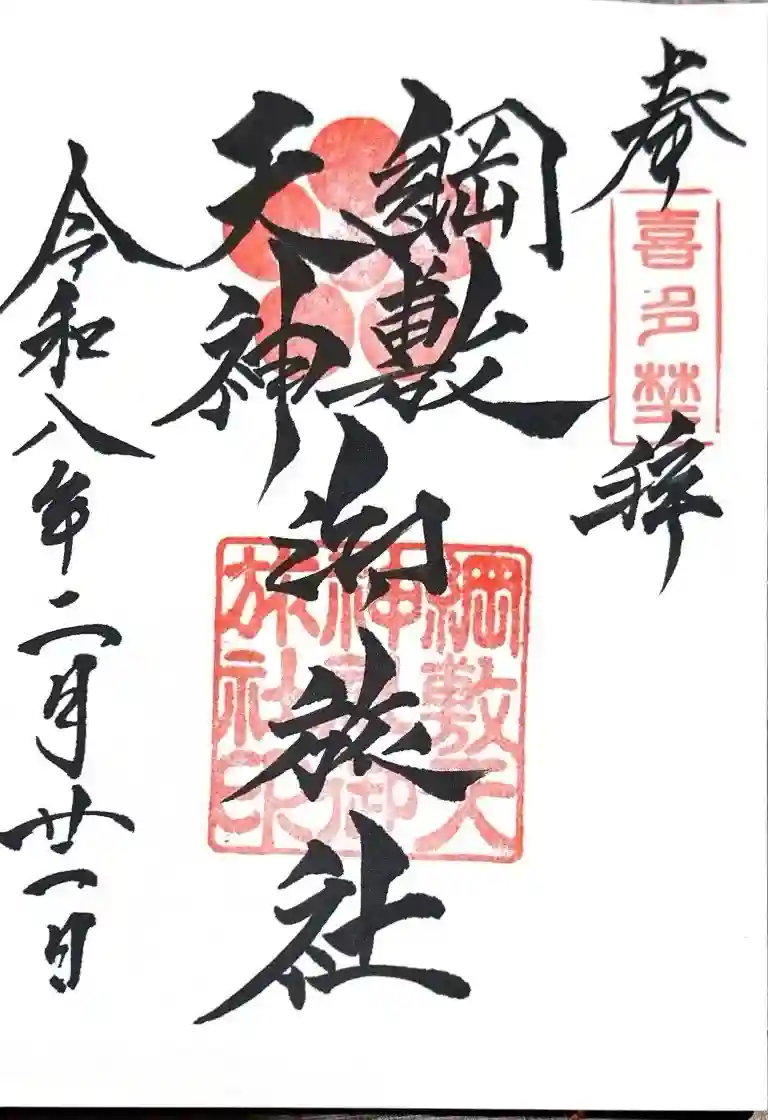 奉拝
喜多埜
綱敷
天神
御旅社
綱敷天
神御
旅社印
令和八年二月廿一日